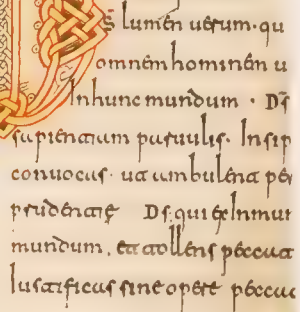 s̄ lumen uerum · qu
omnem hominem u
In hunc mundum · Ds̄
sapientiam paruulis · Insip
conuocas · ut ambulent per
prudentię Ds̄ qui es In mun
mundum, et tollens peccata
Iustificas sine opere peccat